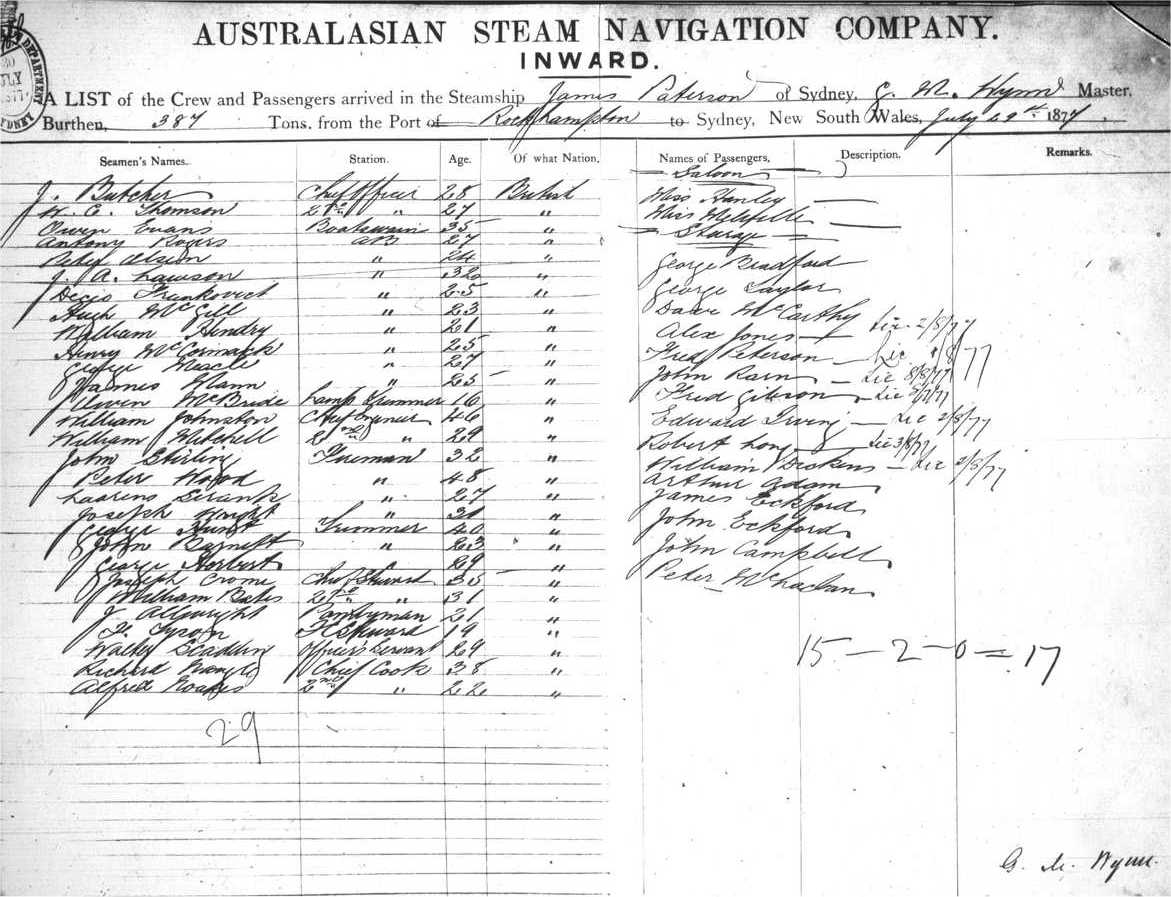 AUSTRALASIAN STEAM NAVIGATION COMPANY.
INWARD.
A LIST of the Crew and Passengers arrived in the Steamship James Paterson of Sydney, G. M. Wynn Master,
Burthen, 387 Tons. from the Port of Rockhampton to Sydney, New South Wales, July 29th 1877.
Seamen's Names. Station. Age. Of what Nation,
J. Butcher Chief Officer 28 British
W. C. Thomson 2nd " 27 "
Owen Evans Boatswain 35 "
Antony Rogers AB 27 "
Peter Olsen " 24 "
J. A. Lawson " 32 "
Frankovich " 25 "
Hugh McGill " 23 "
William Hendry " 21 "
Henry McCormack " 25 "
George " 27 "
James Mann " 25 "
Owen McBride Lamp Trimmer 16 "
William Johnston Chief Engineer 46 "
William Mitchell 2nd " 29 "
John Stirling Fireman 32 "
Peter Wood " 48 "
" 27 "
Joseph Wright " 31 "
George Hunt Trimmer 40 "
John Barnett " 23 "
George Herbert 29 "
Joseph Crome Chief Steward 35 "
William Bates 2nd " 31 "
J. Allwright Pantryman 21 "
F. Tyson Steward 19 "
Walter Scadding Officer's Servant 29 "
Richard Chief Cook 38 "
Alfred Noakes 2nd " 22 "
29
Names of Passengers, Description, Remarks.
Saloon
Miss Hanley
Miss Melville
Sturage
George Bradford
George Taylor
Dave McCarthy
Alex Jones Lic 2/8/77
Fred Peterson Lic /8/77
John Rarn Lic 8/8/77
Fred Gibson Lic
Edward Irving Lic 2/8/77
Robert Long Lic 3/8/77
William Diskens Lic 2/8/77
Arthur Adam
James Eckford
John Eckford
John Campbell
Peter
15 - 2 - 0 = 17
G. M. Wynn.